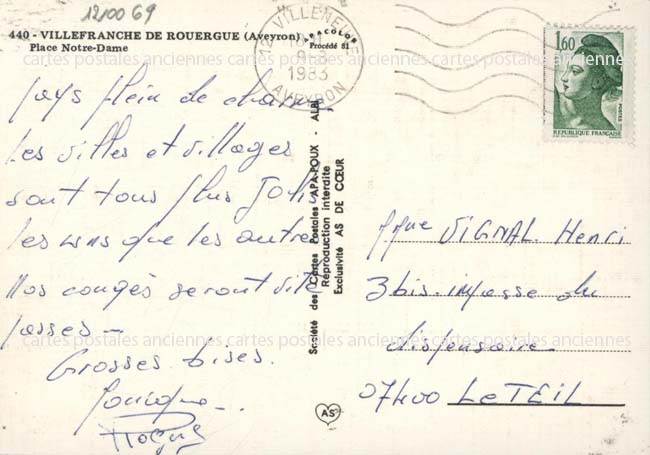 12/00 69
440 - VILLEFRANCHE DE ROUERGUE (Aveyron)
Place Notre-Dame
APACOLOR
Procédé 81
12 VILLENEUVE
9-8
1983
AVEYRON
1,60
POSTES
REPUBLIQUE FRANÇAISE
Pays plein de charme
Les villes et villages
sont tous plus jolis
les uns que les autres
Nos congés seront vite
passés —
Grosses bises.
Société des Cartes Postales APA-POUX - ALBI
Reproduction interdite
Exclusivité AS DE CŒUR
AS
VIGNAL Henri
3 bis impasse du
dispensaire
07400 LE TEIL
cartes postales anciennes cartes postales anciennes cartes postales anciennes